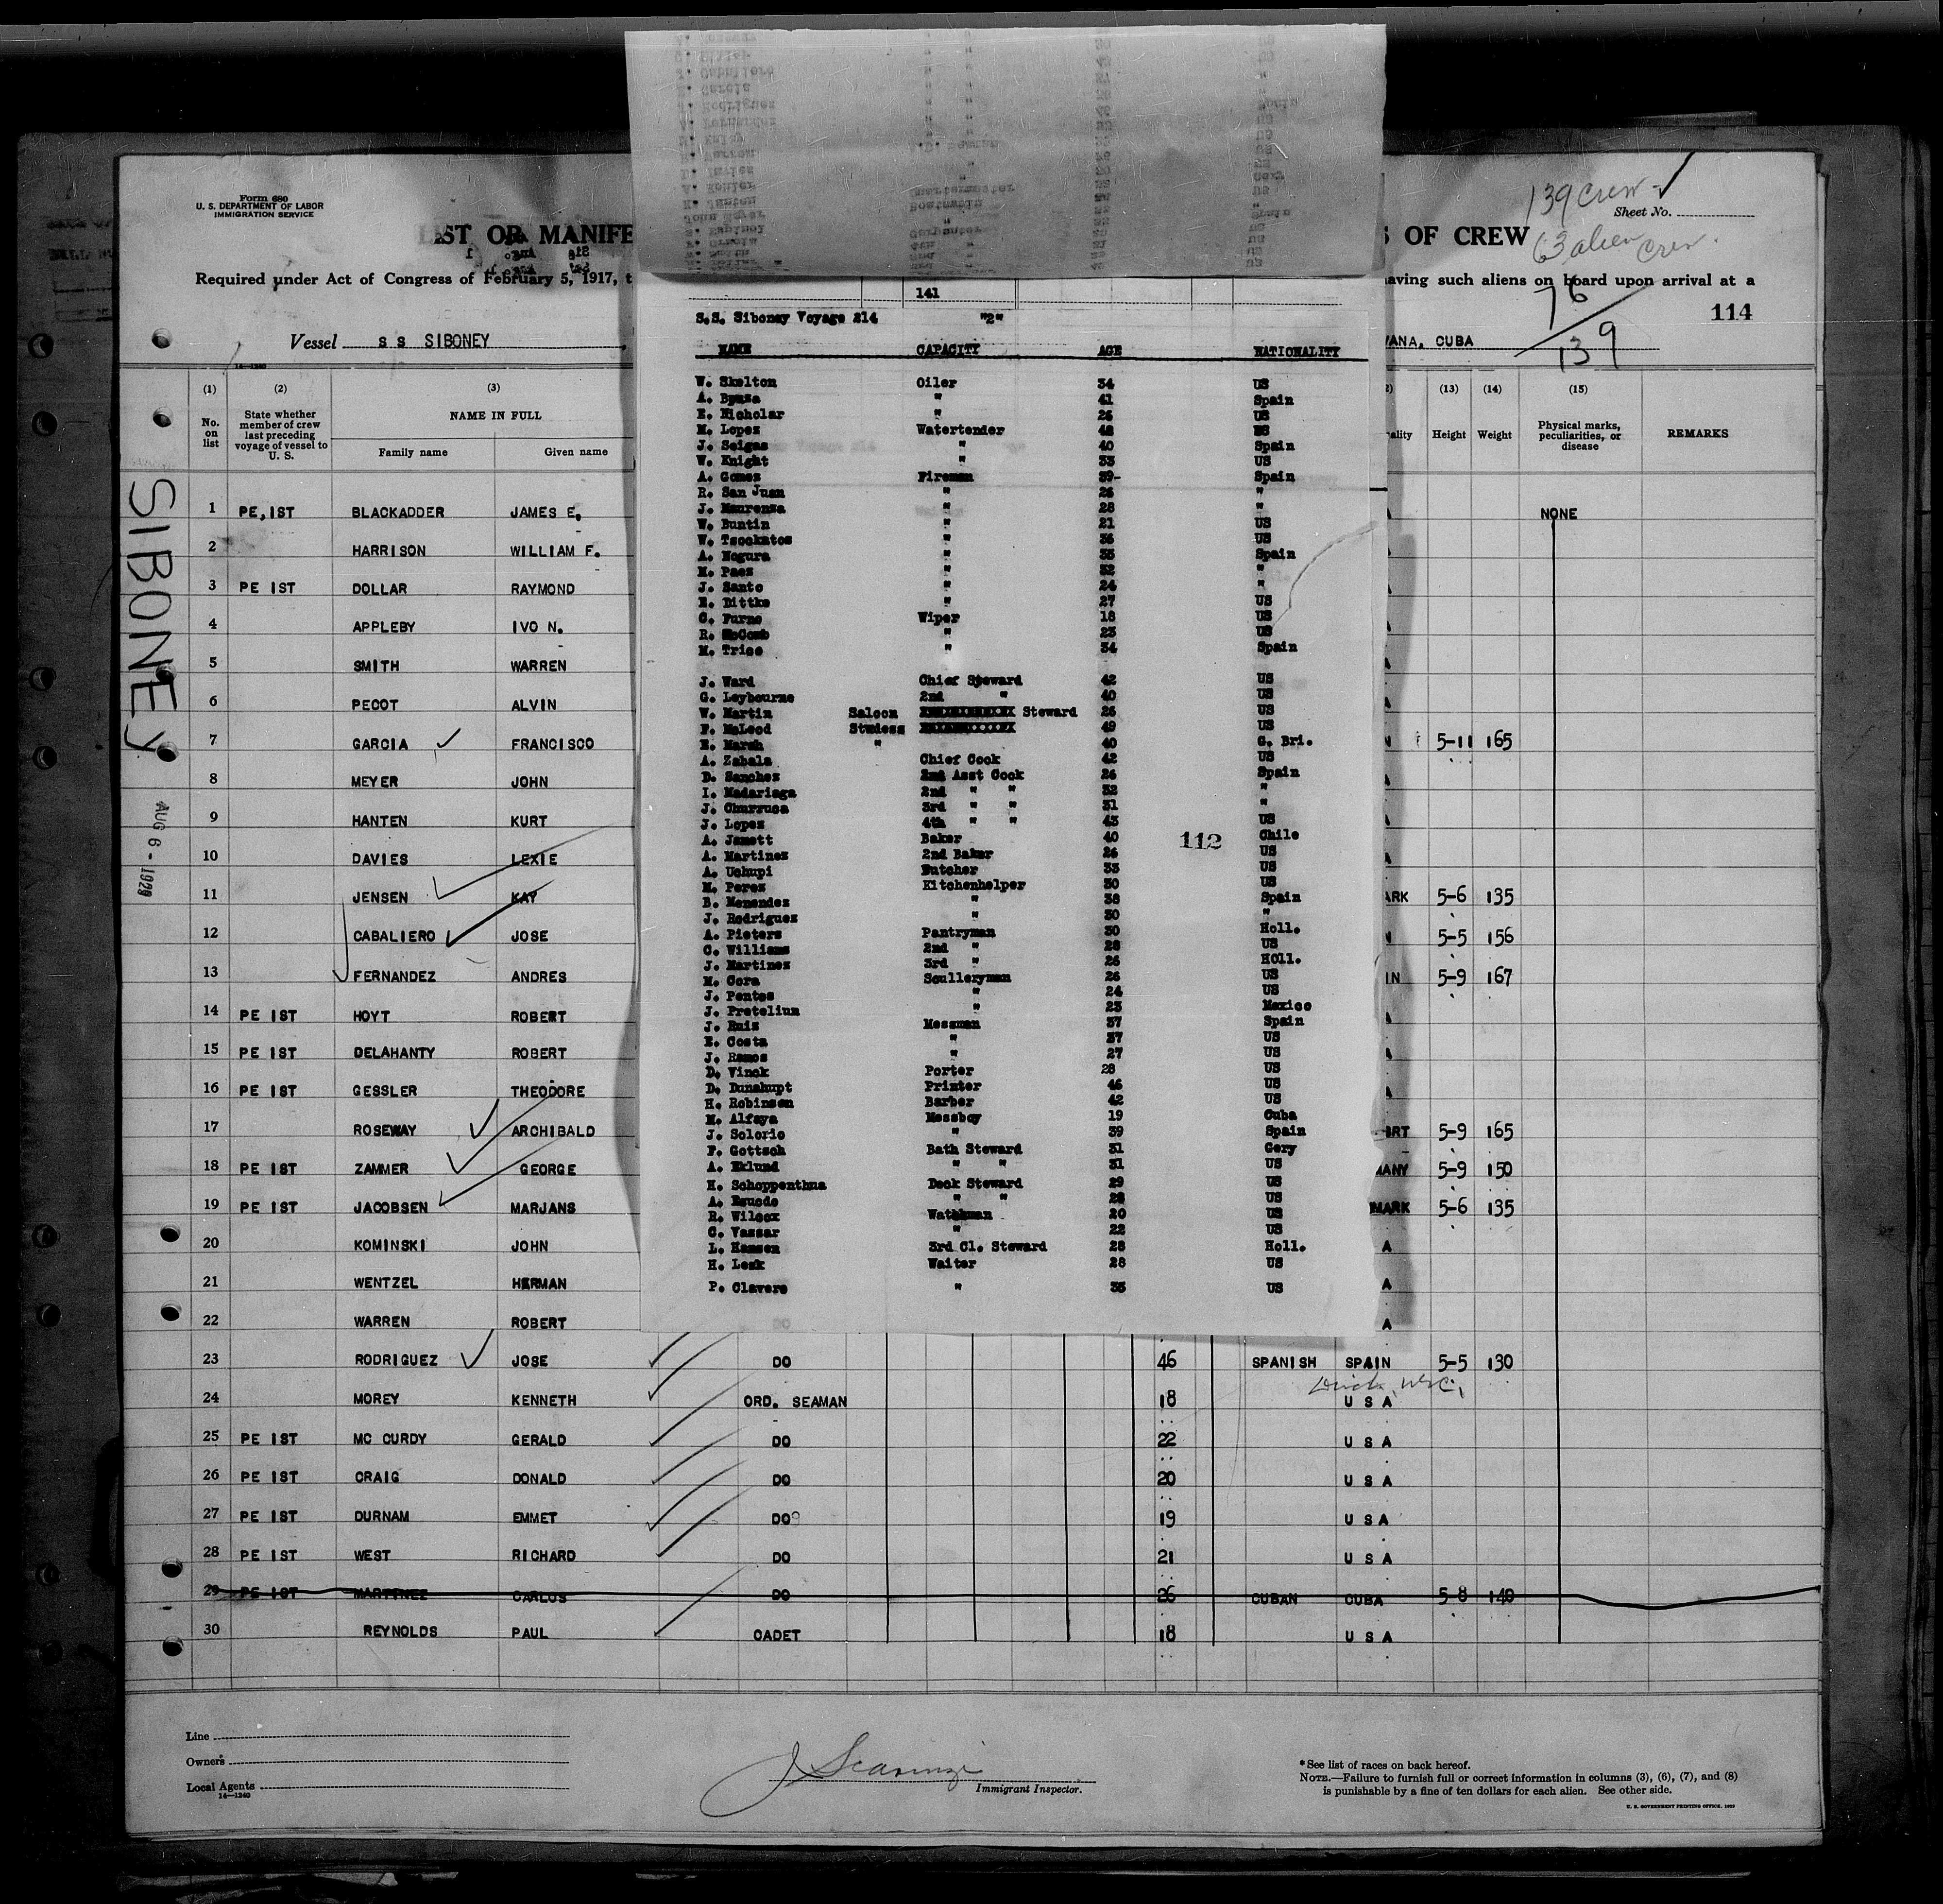 Form 680
U. S. DEPARTMENT OF LABOR
IMMIGRATION SERVICE
IST OR MANIFE
S OF CREW
139 crew
Sheet No.
63 alien crew.
Required under Act of Congress of February 5, 1917, t
aving such aliens on board upon arrival at a
76
139
114
Vessel S S SIBONEY
VANA, CUBA
14—1240
(1) (2) (3) (13) (14) (15)
No. on list
State whether member of crew last preceding voyage of vessel to U. S.
NAME IN FULL
Family name Given name
ality Height Weight
Physical marks, peculiarities, or disease
REMARKS
SIBONEY
AUG 6 - 1929
1 PE, IST BLACKADDER JAMES E. NONE
2 HARRISON WILLIAM F.
3 PE IST DOLLAR RAYMOND
4 APPLEBY IVO N.
5 SMITH WARREN
6 PECOT ALVIN
7 GARCIA FRANCISCO N 5-11 165
8 MEYER JOHN
9 HANTEN KURT
10 DAVIES LEXIE
11 JENSEN KAY ARK 5-6 135
12 CABALIERO JOSE N 5-5 156
13 FERNANDEZ ANDRES IN 5-9 167
14 PE IST HOYT ROBERT
15 PE IST DELAHANTY ROBERT
16 PE IST GESSLER THEODORE
17 ROSEWAY ARCHIBALD 5-9 165
18 PE IST ZAMMER GEORGE MANY 5-9 150
19 PE IST JACOBSEN MARJANS MARK 5-6 135
20 KOMINSKI JOHN A
21 WENTZEL HERMAN A
22 WARREN ROBERT A
23 RODRIGUEZ JOSE DO 46 SPANISH SPAIN 5-5 130
24 MOREY KENNETH ORD. SEAMAN 18 U S A
25 PE IST MC CURDY GERALD DO 22 U S A
26 PE IST CRAIG DONALD DO 20 U S A
27 PE IST DURNAM EMMET DO 19 U S A
28 PE IST WEST RICHARD DO 21 U S A
29 PE IST MARTINEZ CARLOS DO 26 CUBAN CUBA 5-8 140
30 REYNOLDS PAUL CADET 18 U S A
141
S.S. Siboney Voyage 214 "2"
NAME CAPACITY AGE NATIONALITY
W. Skelton Oiler 34 US
A. Bouza " 41 Spain
E. Nicholar " 26 US
M. Lopez Watertender 48 US
J. Seigas " 40 Spain
W. Knight " 33 US
A. Gomez Fireman 39- Spain
R. San Juan " 26 "
J. Maurenza " 28 "
W. Buntin " 21 US
W. Tsockatos " 36 US
A. Nogura " 33 Spain
M. Paez " 32 "
J. Santo " 24 "
E. Dittke " 27 US
C. Furno Wiper 18 US
R. McComb " 23 US
M. Trigo " 34 Spain
J. Ward Chief Steward 42 US
G. Leybourne 2nd " 40 US
W. Martin Saloon Steward 26 US
F. McLeod Studess 49 US
E. Marsh " 40 G. Bri.
A. Zabala Chief Cook 42 US
D. Sanchez 2nd Asst Cook 26 Spain
I. Madariaga 2nd " " 32 "
J. Churruca 3rd " " 31 "
J. Lopez 4th " " 43 US
A. Jamett Baker 40 Chile
A. Martinez 2nd Baker 26 US
A. Uchupi Butcher 33 US
M. Perez Kitchenhelper 30 US
B. Menendez " 38 Spain
J. Rodriguez " 30 "
A. Pieters Pantryman 30 Holl.
C. Williams 2nd " 28 US
J. Martinez 3rd " 26 Holl.
M. Cora Sculleryman 26 US
J. Pentos " 24 US
J. Pretelium " 23 Mexico
J. Ruiz Messman 37 Spain
E. Costa " 37 US
J. Ramos " 27 US
D. Vinck Porter 28 US
D. Dunahupt Printer 46 US
H. Robinson Barber 42 US
M. Alfaya Messboy 19 Cuba
J. Solorio " 39 Spain
F. Gottsch Bath Steward 31 Gery
A. Eklund " " 31 US
H. Schoppenthua Deck Steward 29 US
A. Escudo " " 28 US
R. Wilcox Wathman 20 US
C. Vassar " 22 US
L. Hansen 3rd Cl. Steward 28 Holl.
H. Lesk Waiter 28 US
P. Clavero " 35 US
112
Line
Owners
Local Agents
14—1240
Immigrant Inspector.
* See list of races on back hereof.
NOTE.—Failure to furnish full or correct information in columns (3), (6), (7), and (8)
is punishable by a fine of ten dollars for each alien. See other side.
U. S. GOVERNMENT PRINTING OFFICE